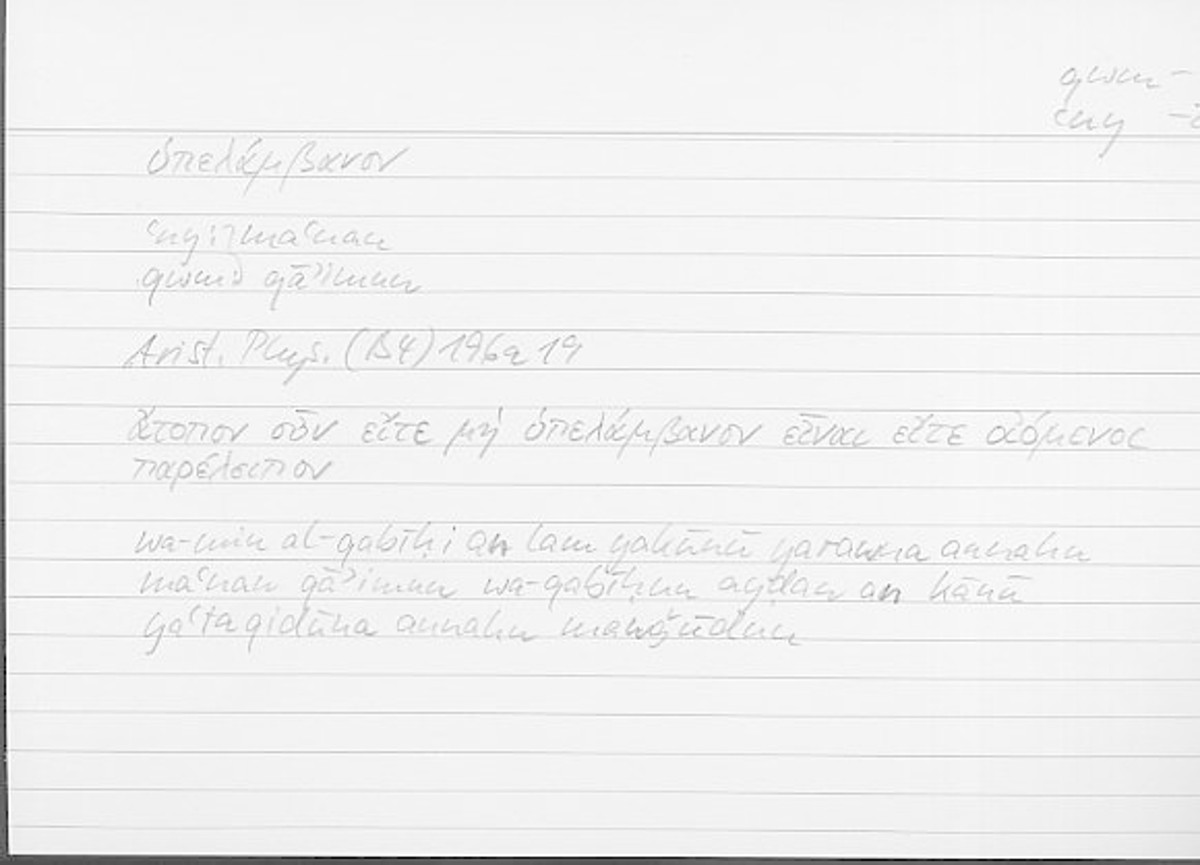 qwm -
ʿny -
ὑπελάμβανον
ʿny : maʿnan
qwm qāʾimun
Arist. Phys. (B4) 196a 19
ἄτοπον οὖν εἴτε μὴ ὑπελάμβανον εἶναι εἴτε οἰόμενοι
παρέλειπον
wa-min al-qabīḥi an lam yakūnū yarawna annahu
maʿnan qāʾimun wa-qabīḥun ayḍan an kānū
yaʿtaqidūna annahu mawǧūdun